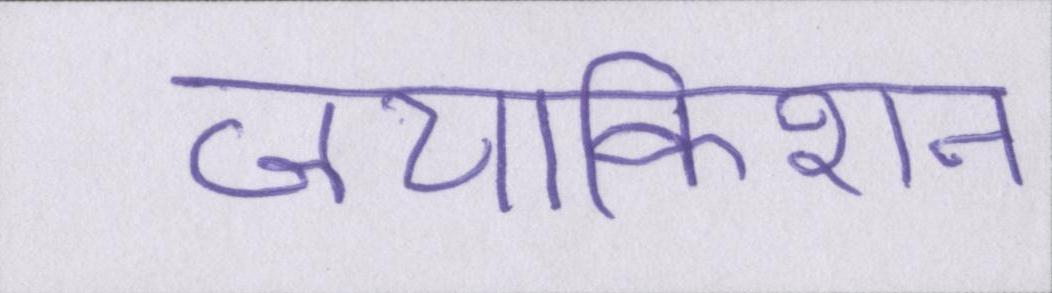 जयाकिशन